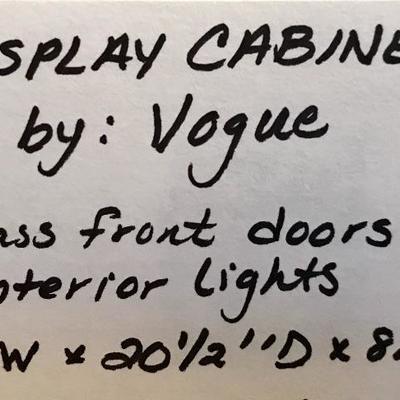 SPLAY CABINE
by: Vogue
ass front doors
nterior lights
W x 20 1/2" D x 8